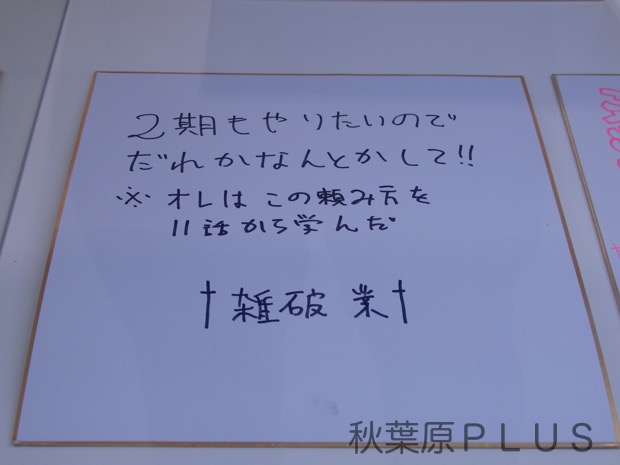 2期もやりたいので
だれかなんとかして!!
※オレはこの頼み方を
11話から学んだ
†雑破業†
秋葉原PLUS